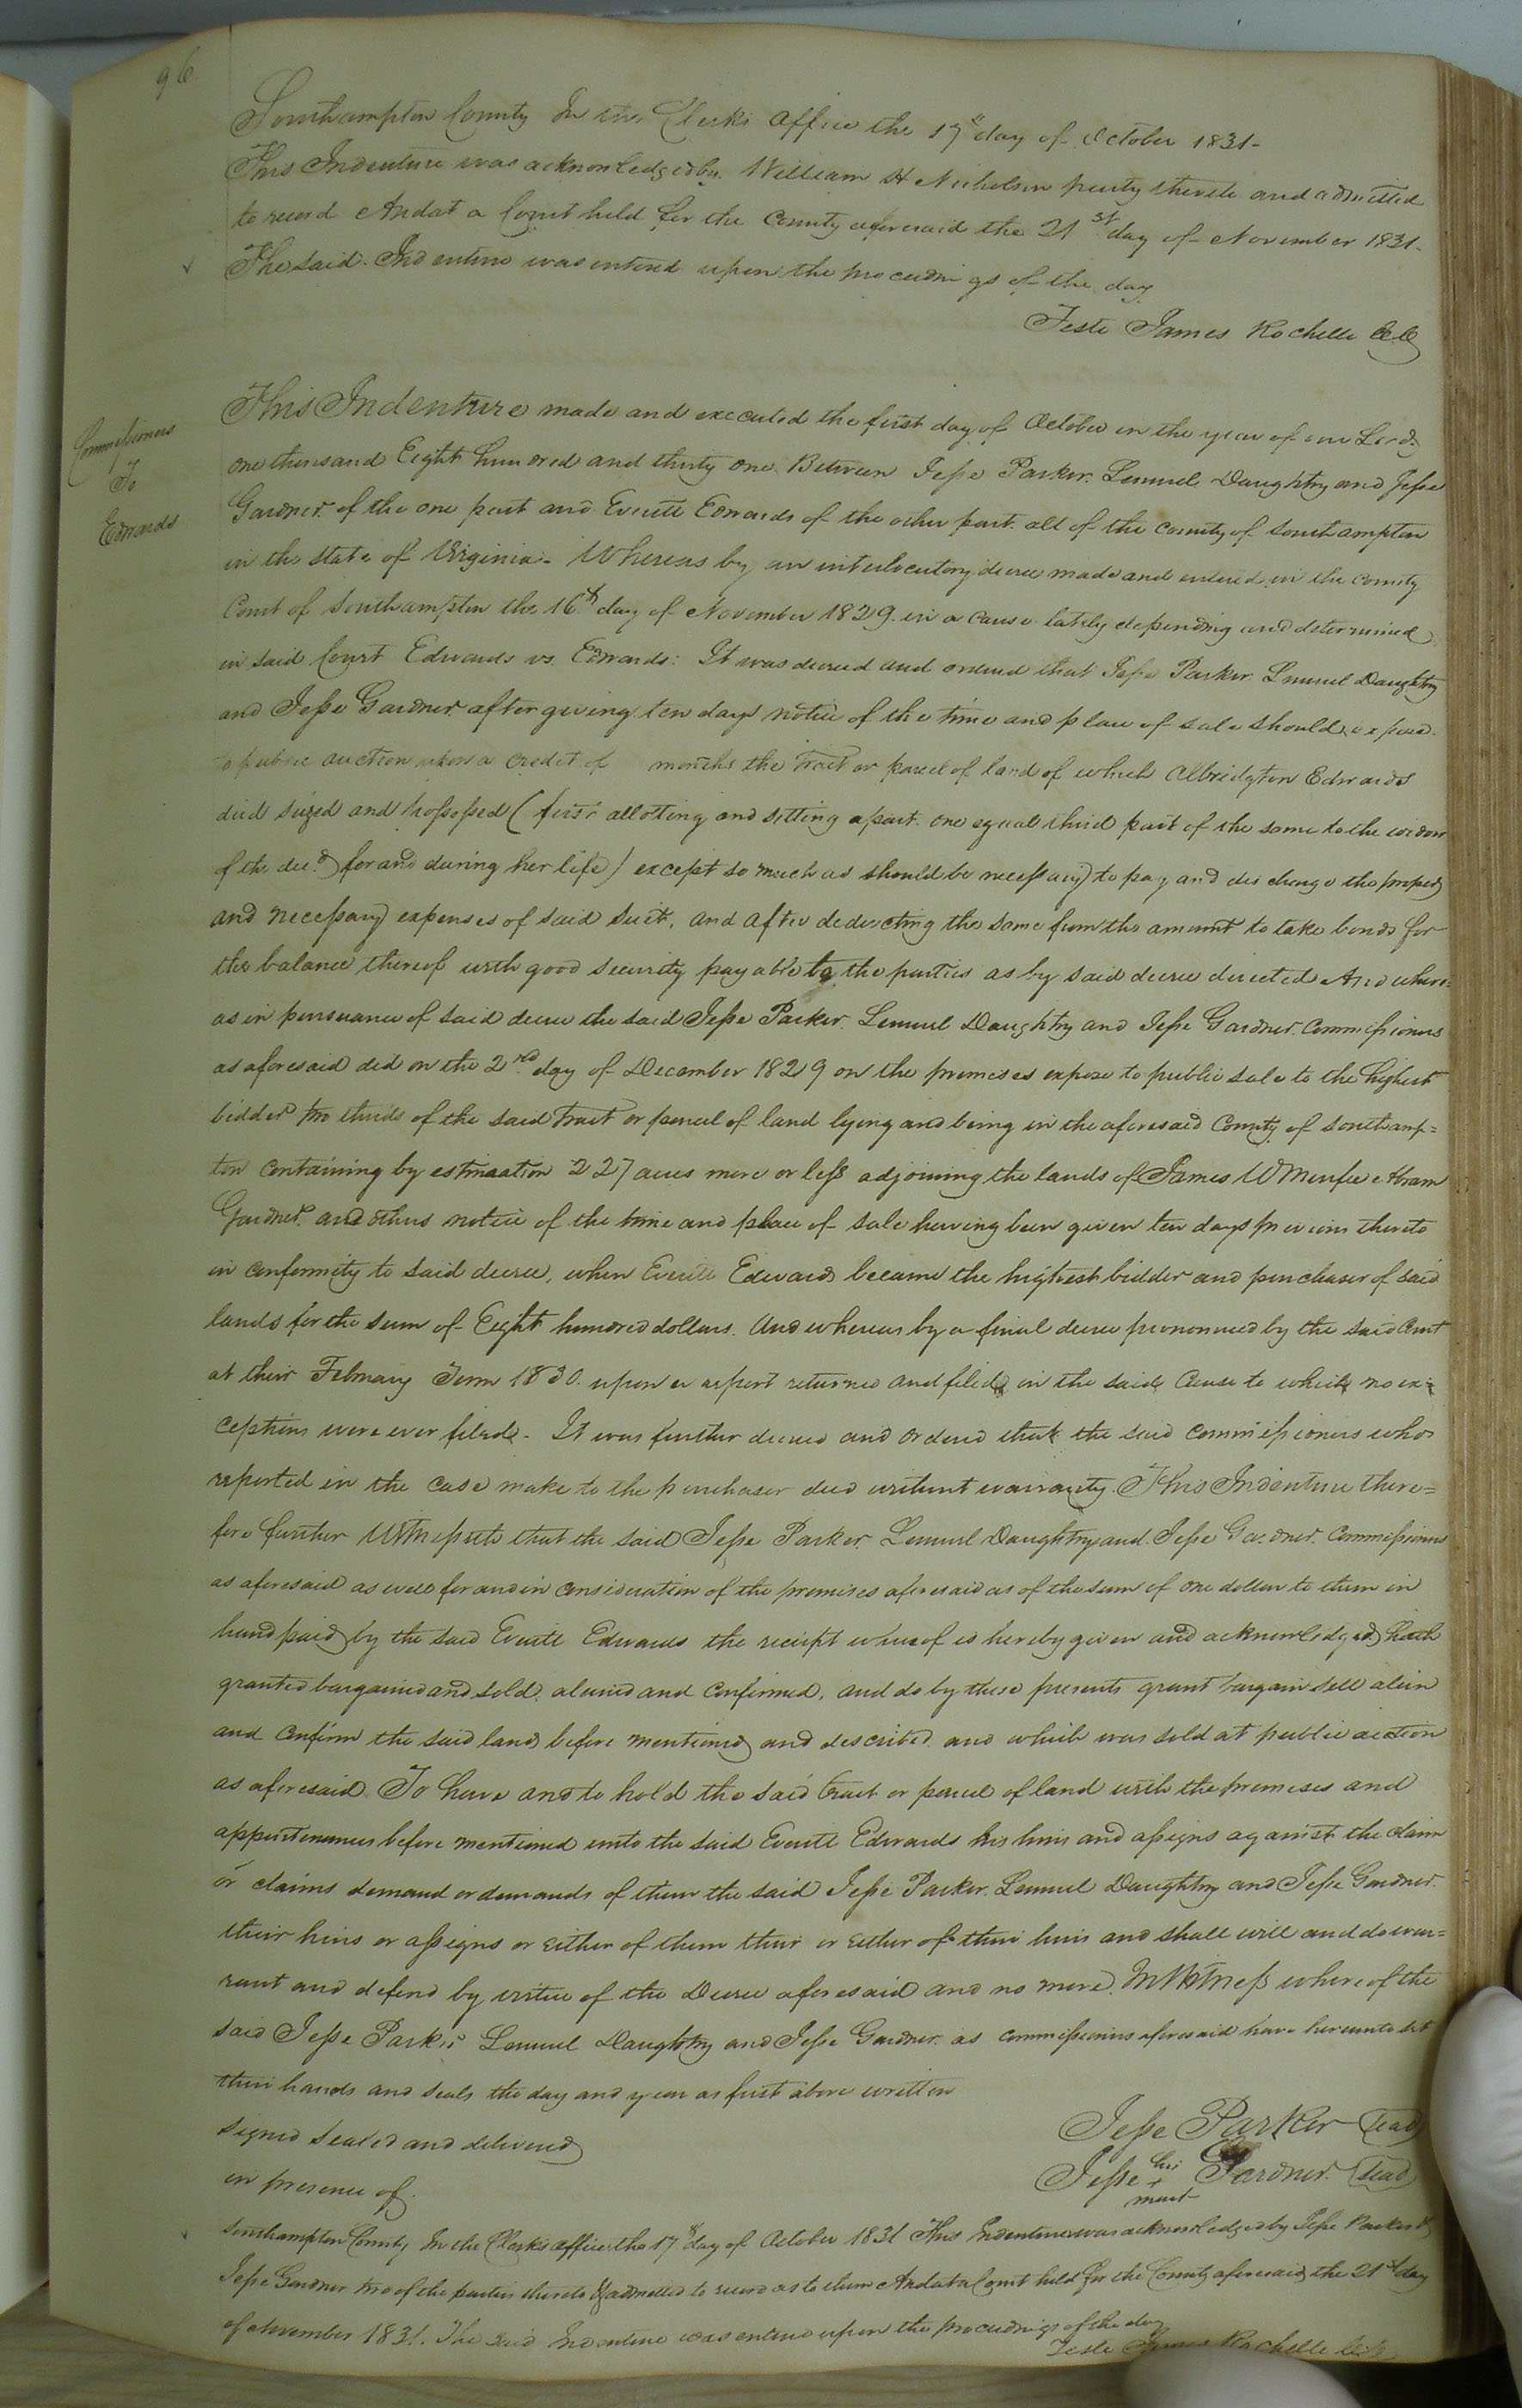 96.
Southampton County In the Clerks Office the 17th day of October 1831-
This Indenture was acknowledged by William H Nicholson party thereto and admitted
to record And at a Court held for the County aforesaid the 21st day of November 1831.
The said Indenture was entered upon the proceedings of the day
Teste James Rochelle CC
Commissioners
To
Edwards
This Indenture made and executed the first day of October in the year of our Lord
one thousand Eight hundred and thirty one Between Jesse Parker, Lemuel Daughtry and Jesse
Gardner of the one part and Everitt Edwards of the other part all of the county of Southampton
in the state of Virginia - Whereas by an interlocutory decree made and entered in the county
Court of Southampton the 16th day of November 1829 in a cause lately depending and determined
in said Court Edwards vs. Edwards: It was decreed and ordered that Jesse Parker Lemuel Daughtry
and Jesse Gardner after giving ten days notice of the time and place of sale should expose
to public auction upon a credit of months the tract or parcel of land of which Albridgton Edwards
died seized and possessed (first allotting and setting apart one equal third part of the same to the widow
of the decd. for and during her life) except so much as should be necessary to pay and discharge the proper
and necessary expenses of said suit, and after deducting the same from the amount to take bonds for
the balance thereof with good security payable to the parties as by said decree directed And where=
as in pursuance of said decree the said Jesse Parker, Lemuel Daughtry and Jesse Gardner Commissioners
as aforesaid did on the 2nd day of December 1829 on the premises expose to public sale to the highest
bidder two thirds of the said tract or parcel of land lying and being in the aforesaid County of Southamp=
ton containing by estimaation 227 acres more or less adjoining the lands of James W Menfee Abram
Gardner and others notice of the time and place of sale having been given ten days previous thereto
in conformity to said decree, when Everitt Edwards became the highest bidder and purchaser of said
lands for the sum of Eight hundred dollars. And whereas by a final decree pronounced by the said Court
at their February Term 1830 upon a report returned and filed in the said Cause to which no ex=
ceptions were ever filed - It was further decreed and ordered that the said commissioners who
reported in the case make to the purchaser deed without warranty. This Indenture there=
fore further Witnesseth that the said Jesse Parker, Lemuel Daughtry and Jesse Gardner Commissioners
as aforesaid as well for and in consideration of the premises aforesaid as of the sum of one dollar to them in
hand paid by the said Everitt Edwards the receipt whereof is hereby given and acknowledged hath
granted bargained and sold, aliened and confirmed, and do by these presents grant bargain sell alien
and confirm the said land before mentioned and described and which was sold at public auction
as aforesaid To have and to hold the said tract or parcel of land with the premises and
appurtenances before mentioned unto the said Everitt Edwards his heirs and assigns against the claim
or claims demand or demands of them the said Jesse Parker, Lemuel Daughtry and Jesse Gardner
their heirs or assigns or either of them their or either of their heirs and shall will and do war=
rant and defend by virtue of the Decree aforesaid and no more. In Witness whereof the
said Jesse Parker Lemuel Daughtry and Jesse Gardner as commissioners aforesaid have hereunto set
their hands and seals the day and year as first above written
Signed Sealed and delivered
in presence of
Jesse Parker Seal
Jesse his + mark Gardner Seal
Southampton County In the Clerks office the 17th day of October 1831 This Indenture was acknowledged by Jesse Parker &
Jesse Gardner two of the parties thereto & admitted to record as to them And at a Court held for the County aforesaid the 21st day
of November 1831. The said Indenture was entered upon the proceedings of the day
Teste James Rochelle